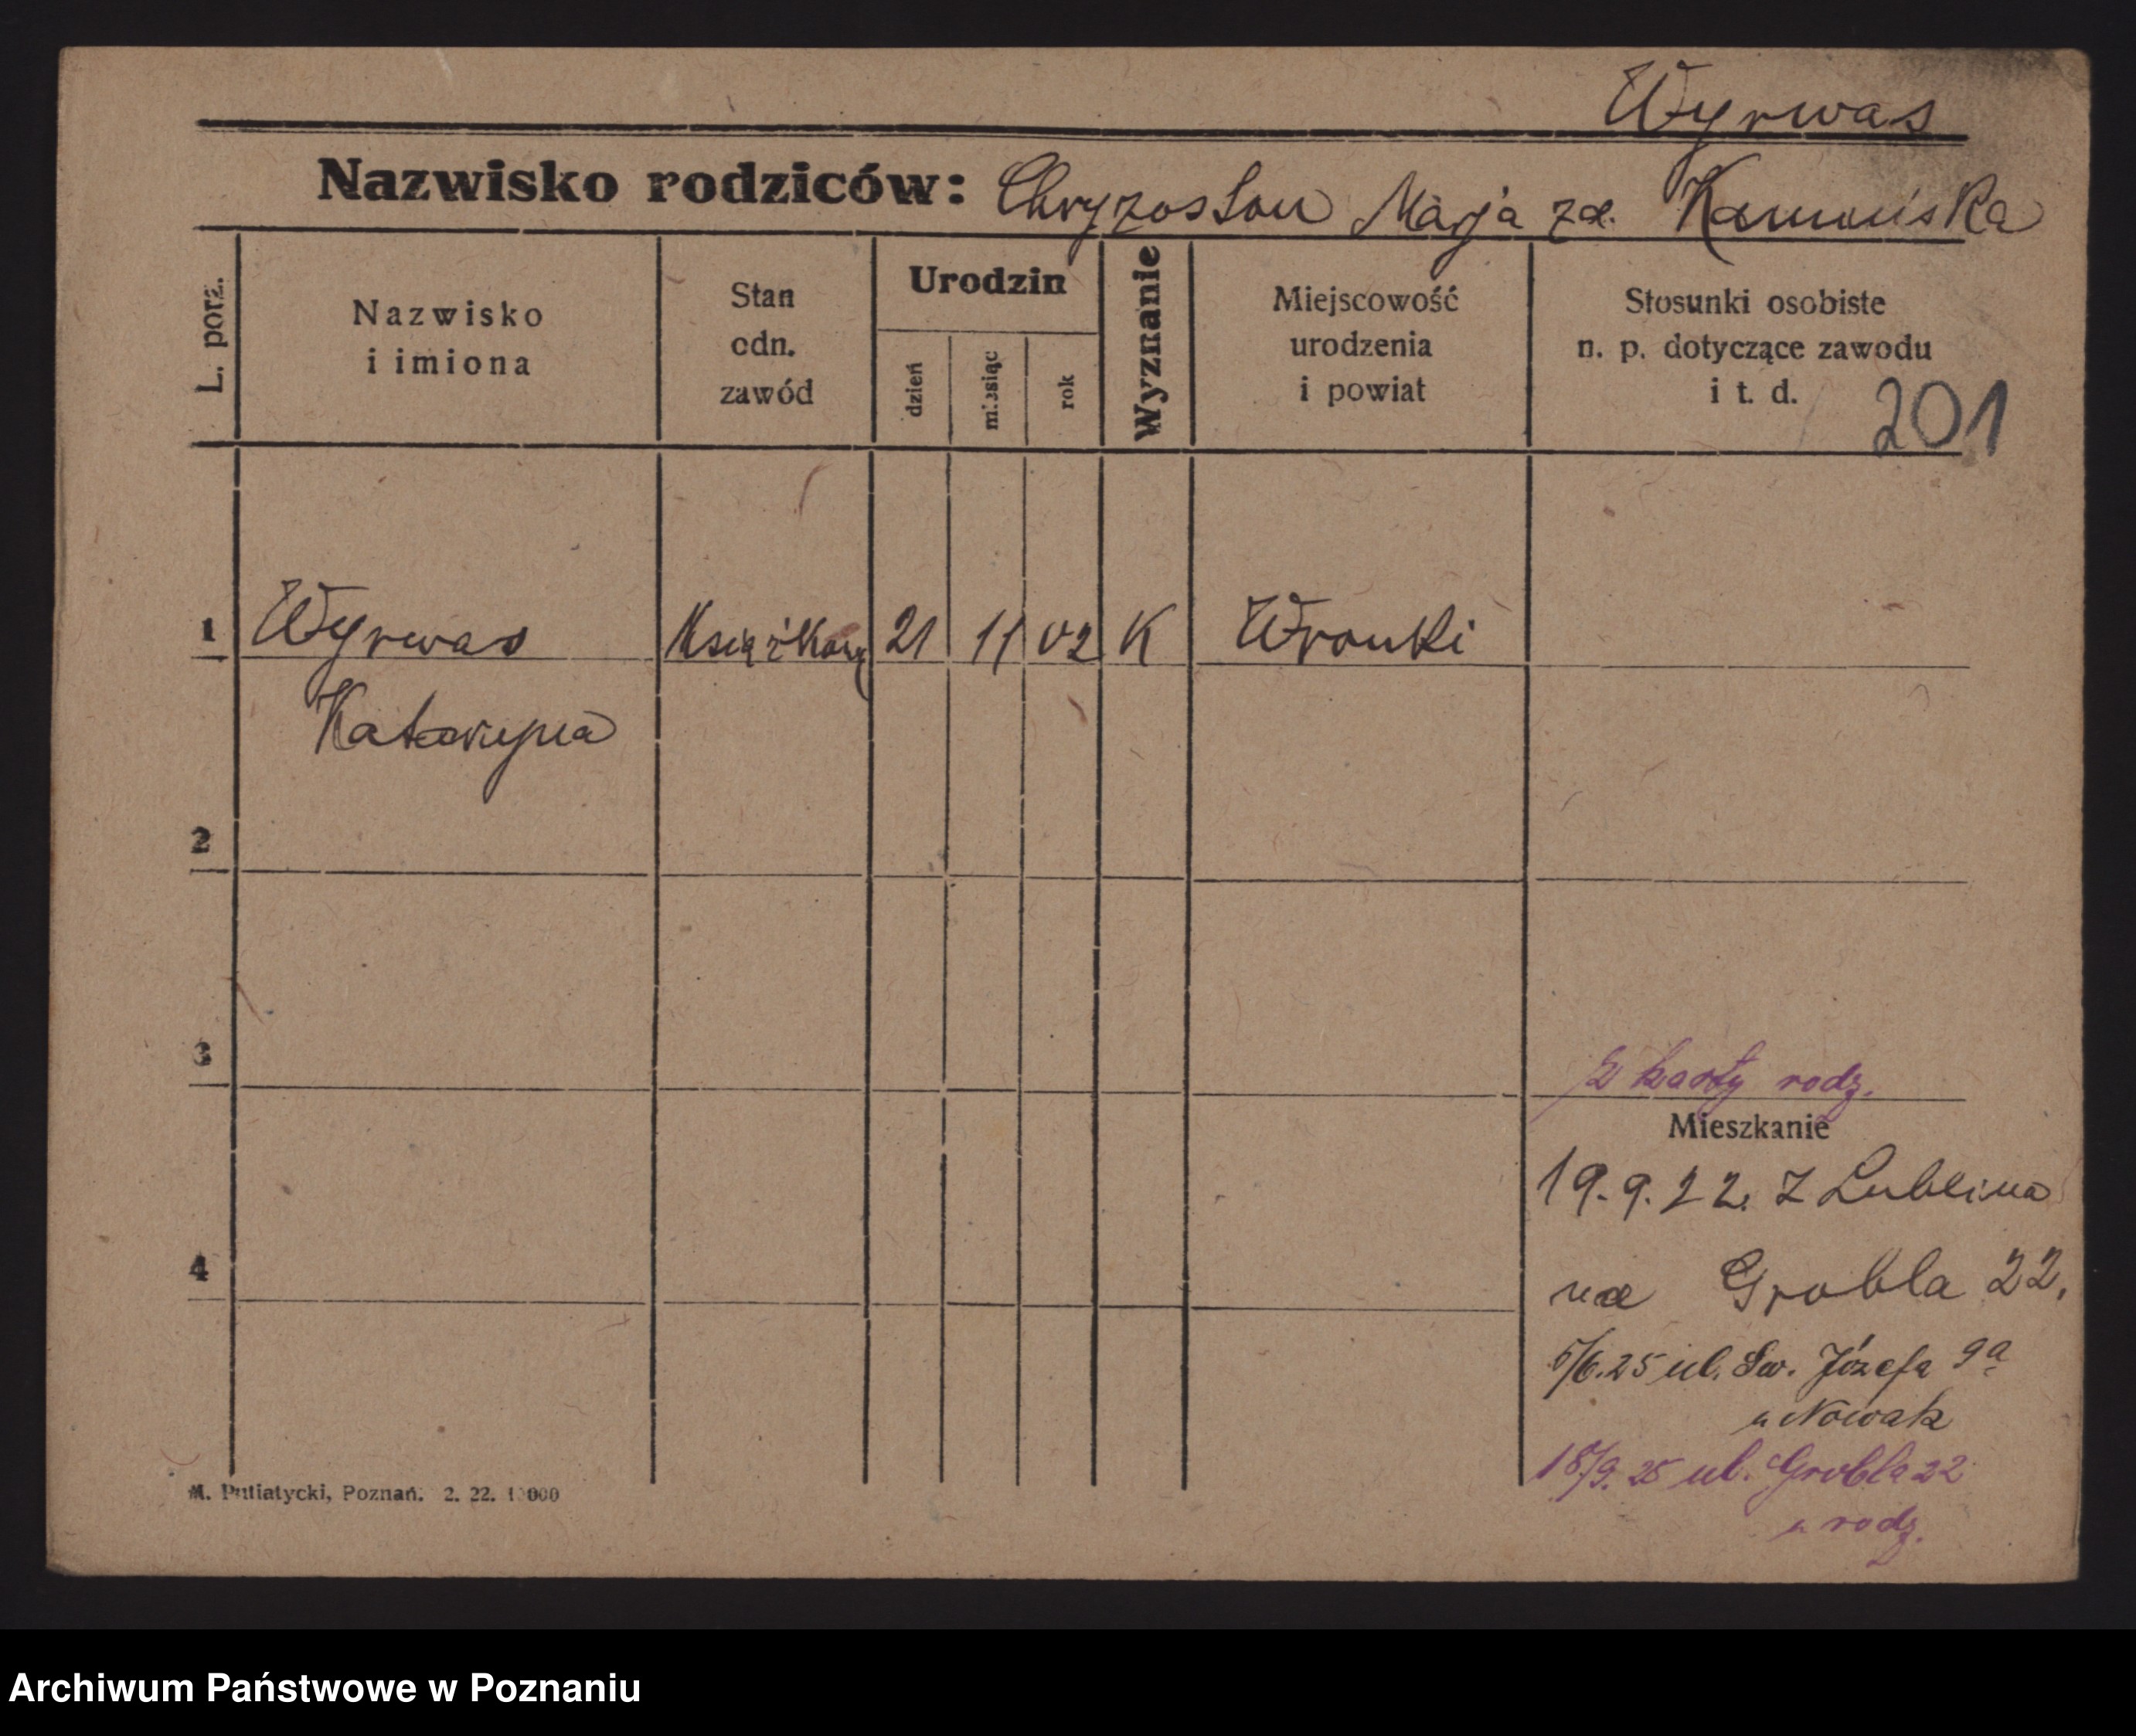 Wyrwas
Nazwisko rodziców: Chryzostom Marja zd. Kamińska
L. porz.
Nazwisko
i imiona
Stan
odn.
zawód
Urodzin
dzień
miesiąc
rok
Wyznanie
Miejscowość
urodzenia
i powiat
Stosunki osobiste
n. p. dotyczące zawodu
i t. d.
201
1 Wyrwas 21 11 02 K Wronki
Katarzyna
2
3
z karty rodz.
Mieszkanie
19.9.22. z Lublina
4
na Grobla 22.
5/6.25 ul. Św. Józefa 9a
u Nowak
18/9.25 ul. Grobla 22
u rodz.
M. Putiatycki, Poznań. 2. 22. 10000
Archiwum Państwowe w Poznaniu